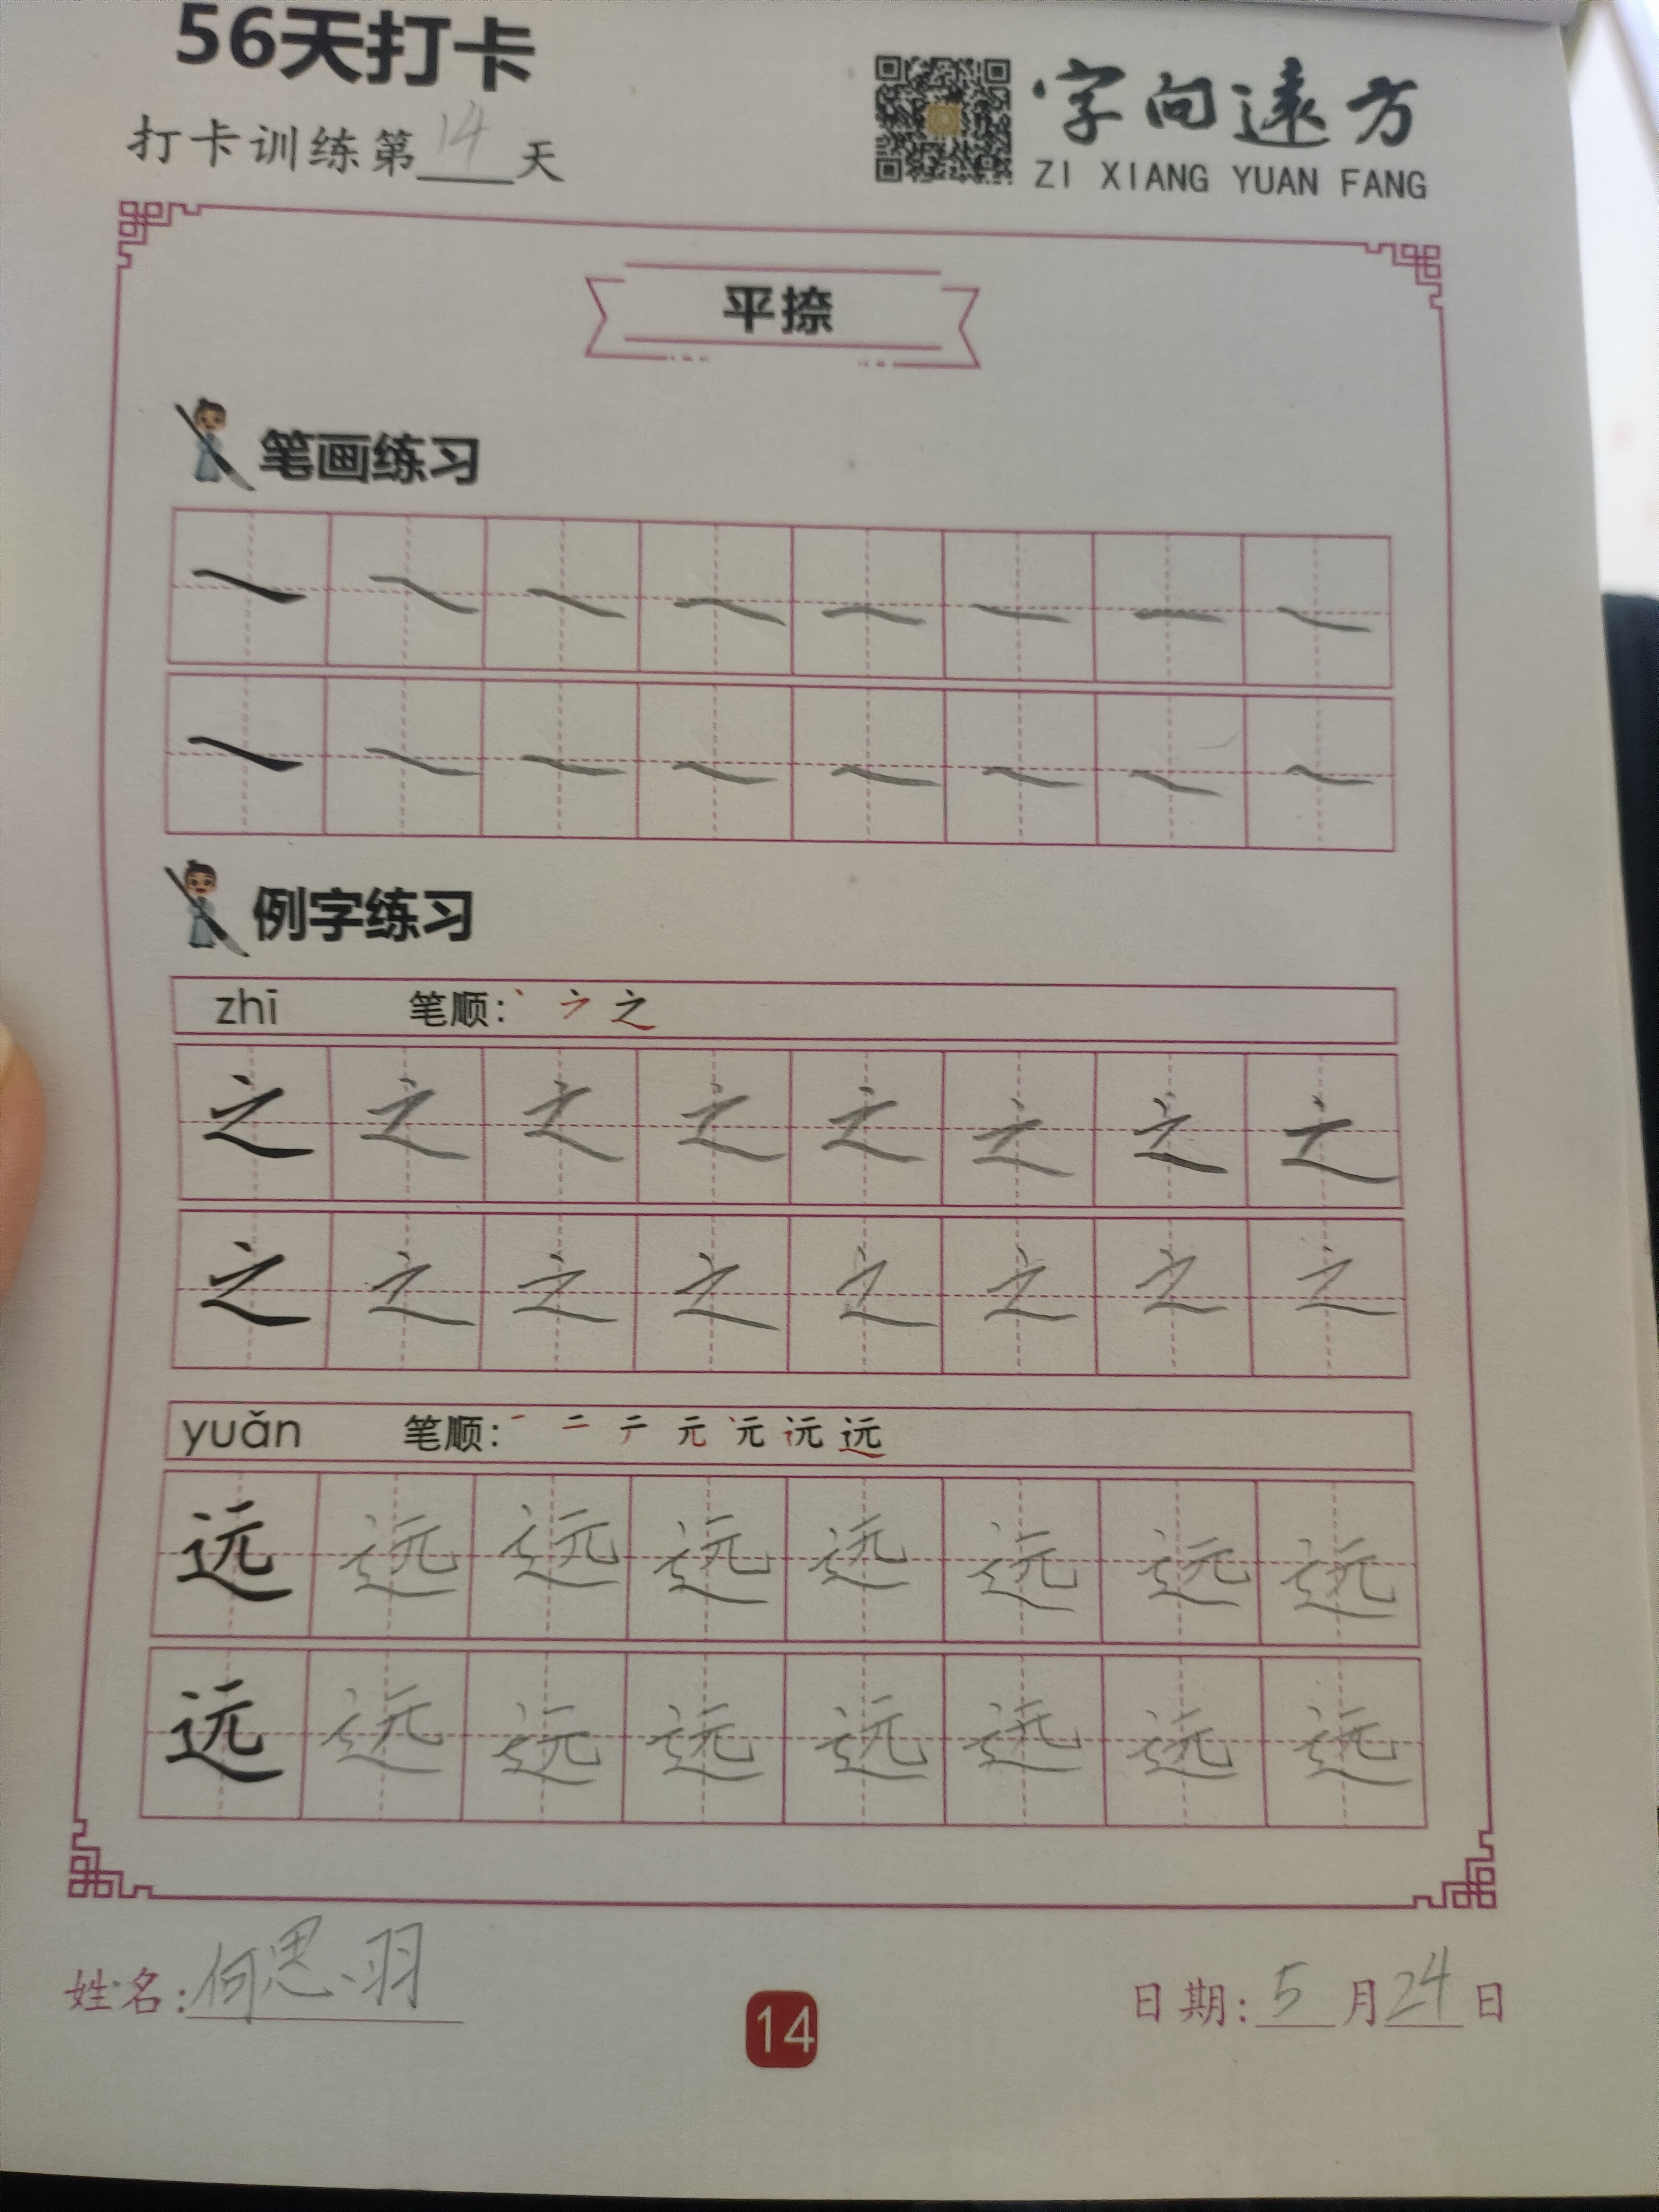 56天打卡
打卡训练第14天
字向远方
ZI XIANG YUAN FANG
平捺
笔画练习
例字练习
zhī 笔顺: 丶 之
之 之 之 之 之 之 之 之
之 之 之 之 之 之 之 之
yuǎn 笔顺: 一 二 元 远
远 远 远 远 远 远 远 远
远 远 远 远 远 远 远 远
姓名: 何思羽
14
日期: 5月24日